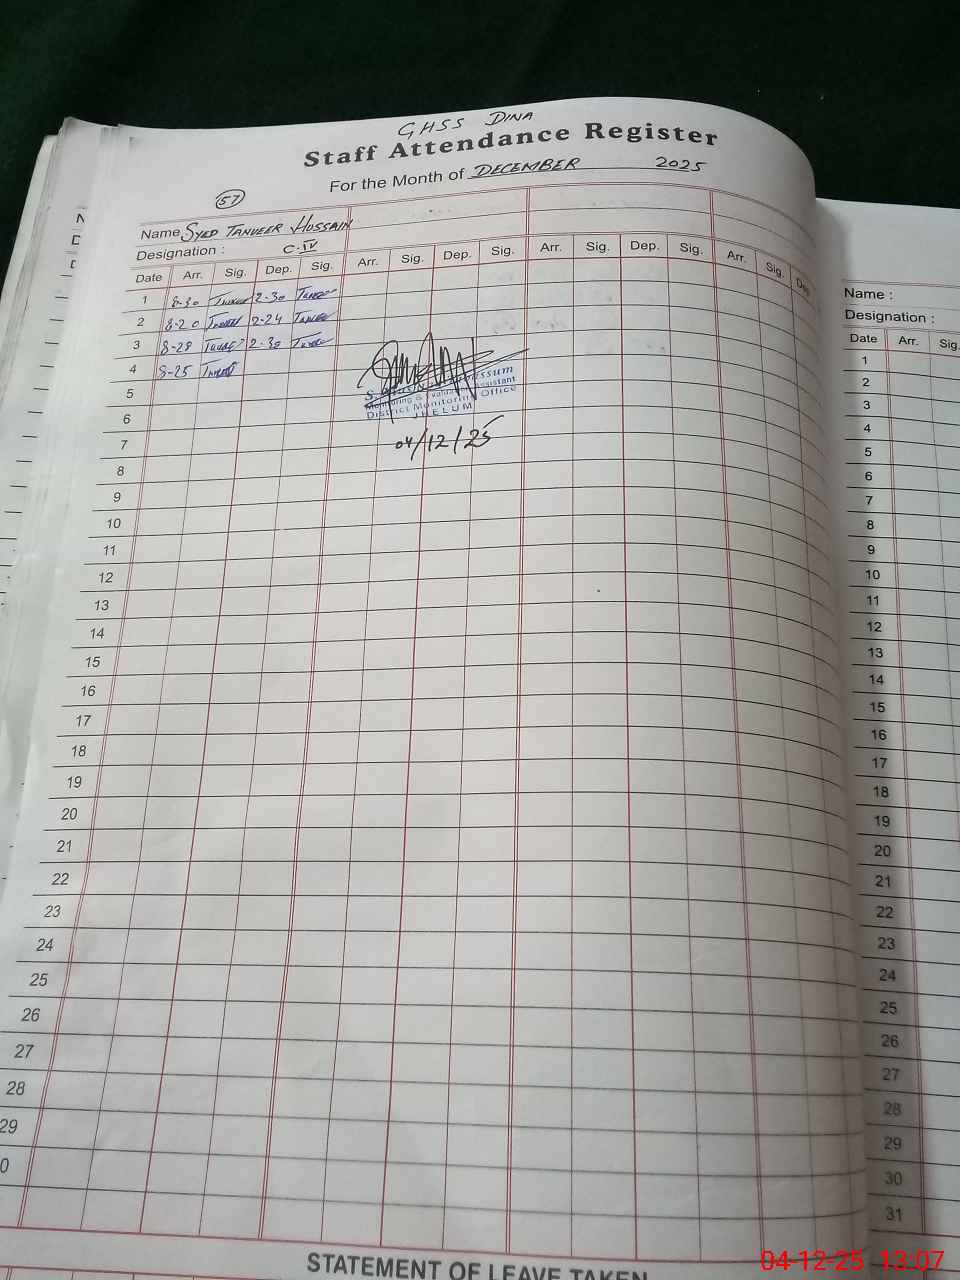 GHSS DINA
Staff Attendance Register
For the Month of DECEMBER 2025
57
Name SYED TANVEER HUSSAIN
Designation : C-IV
Date Arr. Sig. Dep. Sig. Arr. Sig. Dep. Sig. Arr. Sig. Dep. Sig. Arr. Sig. Dep
1 8-30 2-30
2 8-20 2-24
3 8-28 2-30
4 8-25
5
Monitoring & Evaluation Assistant
District Monitoring Office
6
JHELUM
7
04/12/25
8
9
10
11
12
13
14
15
16
17
18
19
20
21
22
23
24
25
26
27
28
29
0
STATEMENT OF LEAVE TAKEN
Name :
Designation :
Date Arr. Sig.
1
2
3
4
5
6
7
8
9
10
11
12
13
14
15
16
17
18
19
20
21
22
23
24
25
26
27
28
29
30
31
04-12-25 13:07